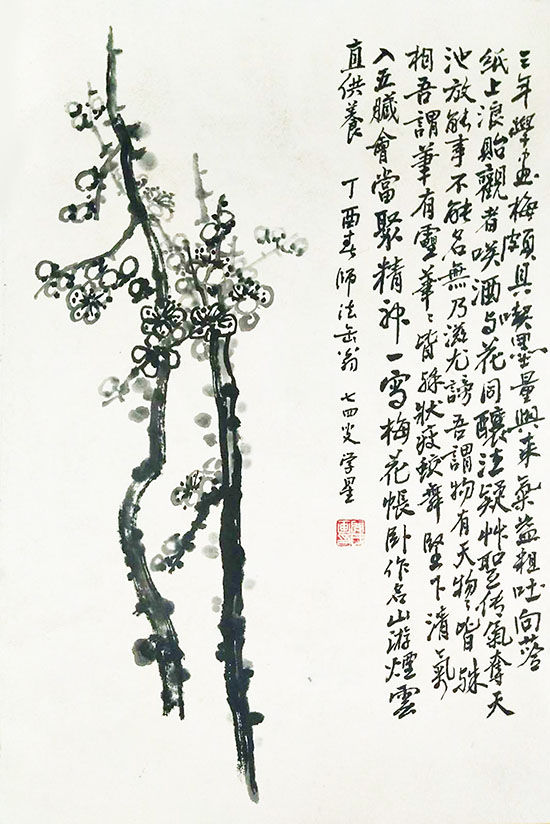 三年學画梅頗具喫墨量興來氣益粗吐向苔
纸上浪貽觀者唉酒与花同釀法疑艸聖传氣奪天
池放能事不能名無乃滋尤謗吾謂物有天物〻皆殊
相吾謂筆有靈筆〻皆殊狀瘦蛟舞堅下清氣
入五臟會當聚精神一寫梅花帳卧作名山游煙雲
直供養
丁酉春師法缶翁
七四叟学星